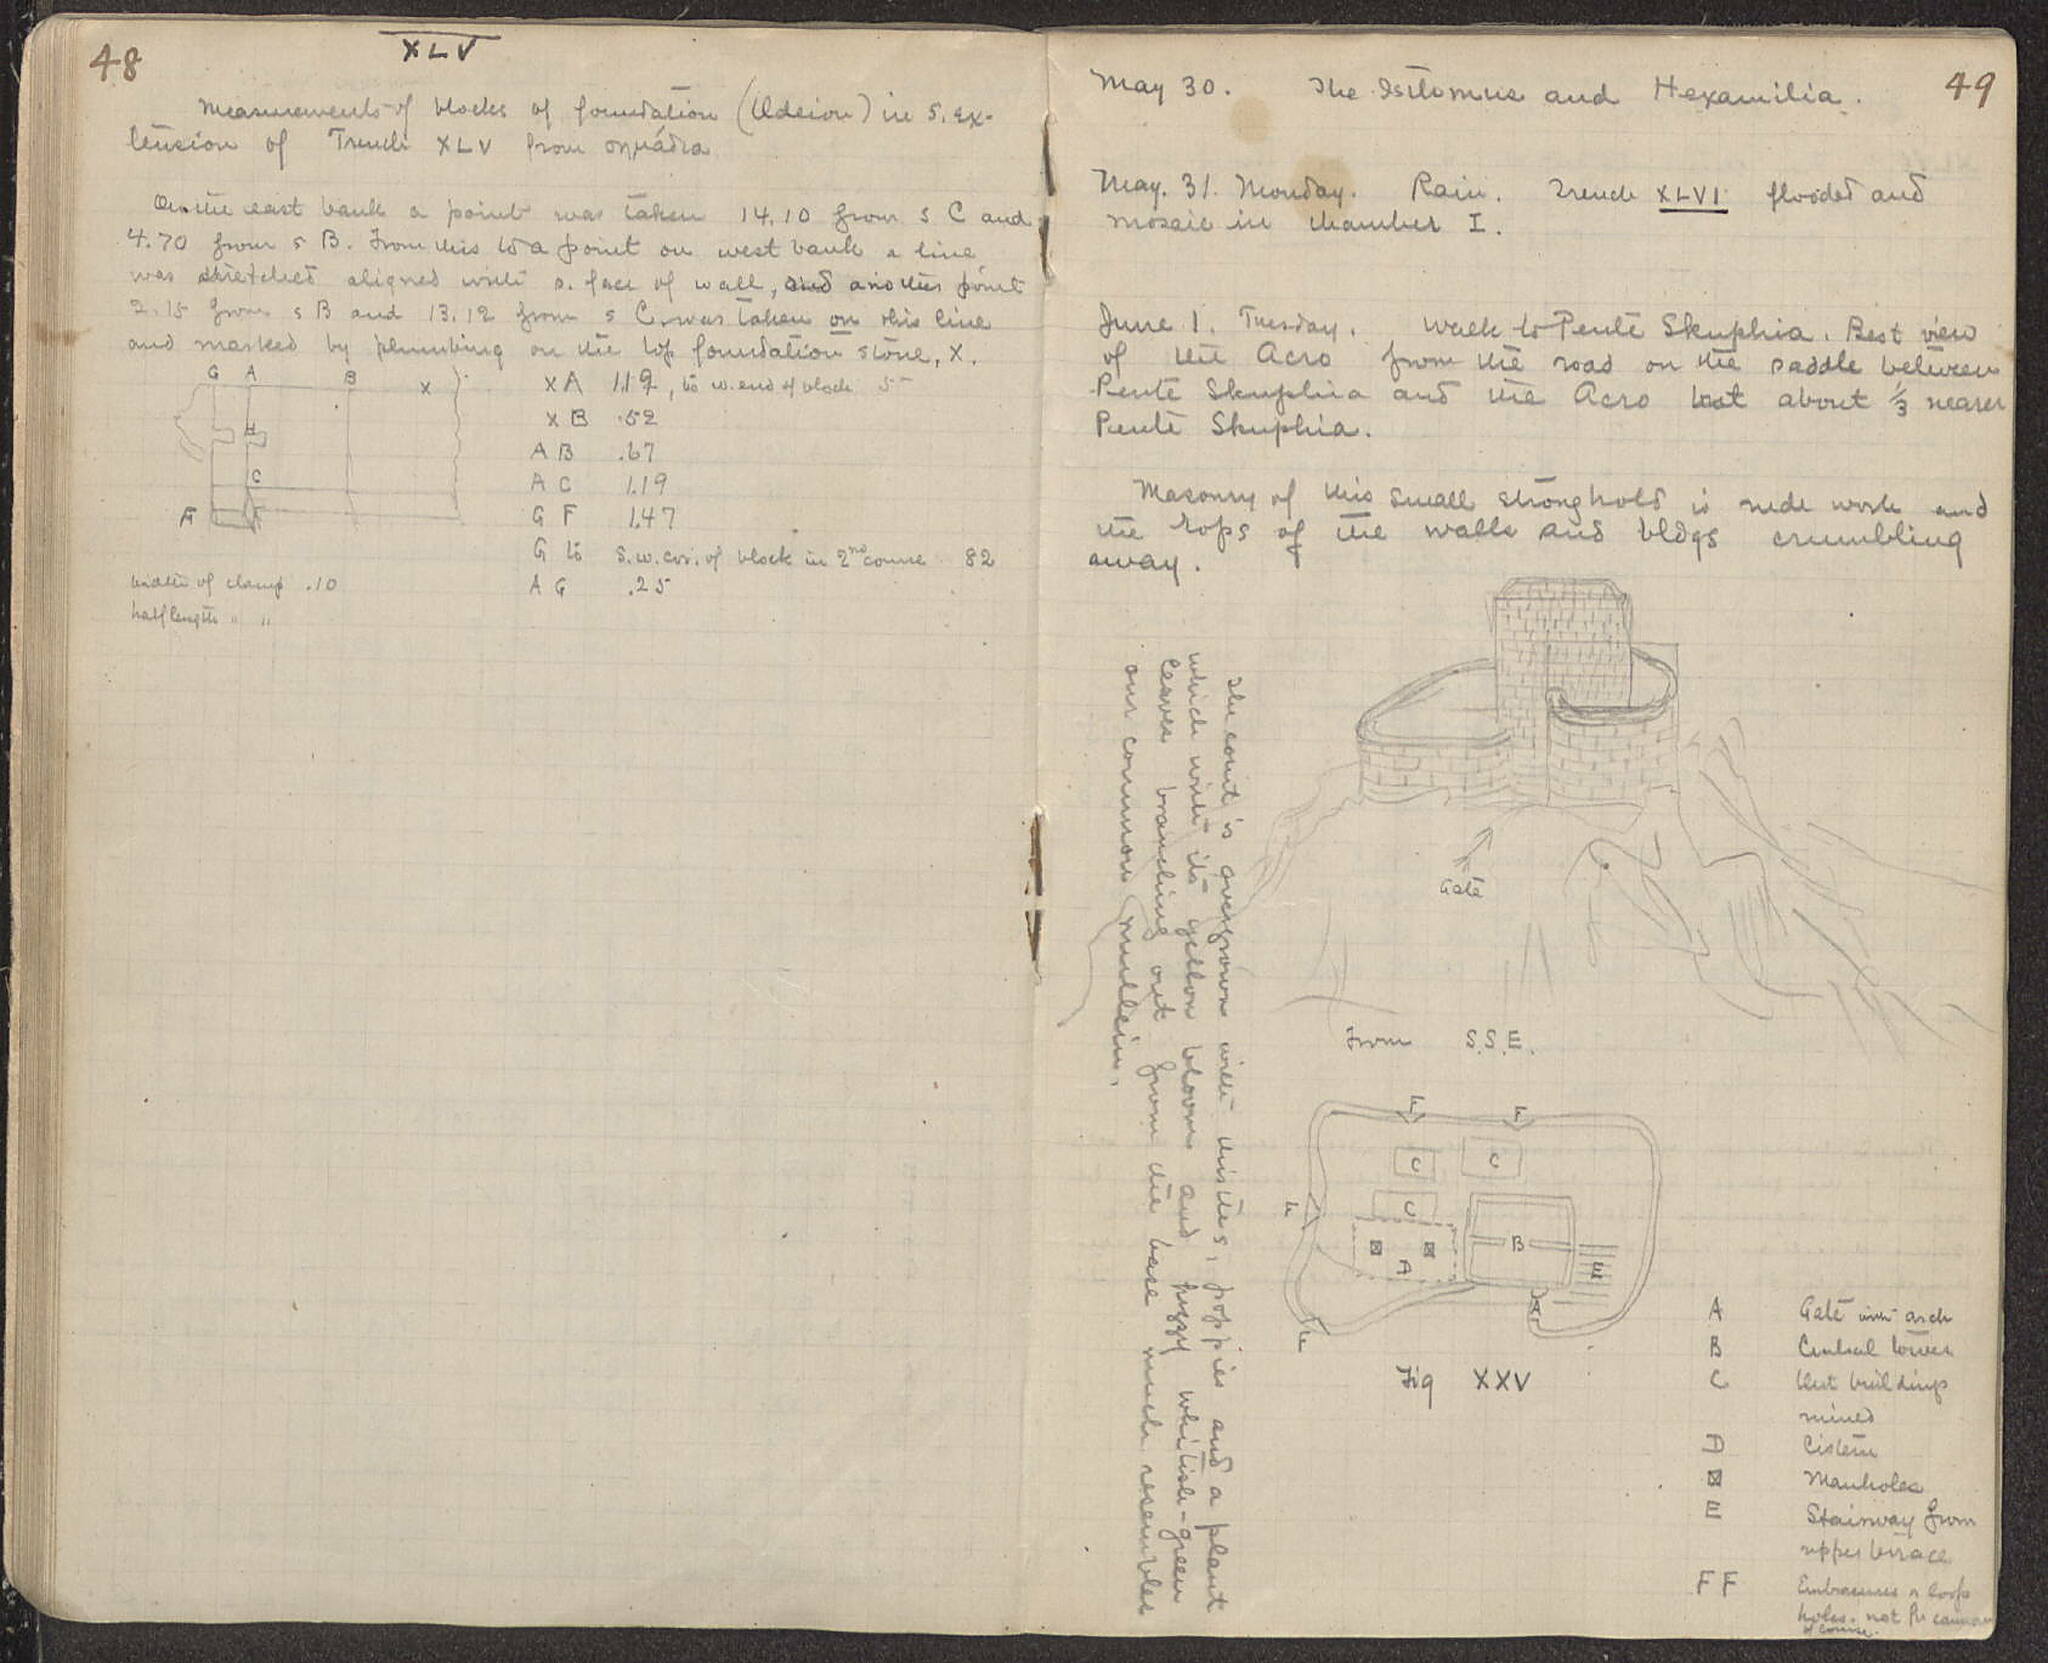 48
XLV
Measurements of blocks of foundation (Odeion) in S. ex-
tension of Trench XLV from σημάδια
On the east bank a point was taken 14.10 from s C and
4.70 from s B. From this to a point on west bank a line
was stretched aligned with s. face of wall, and another point
2.15 from s B and 13.12 from s C was taken on this line
and marked by plumbing on the top foundation stone, X.
G A B X
H
C
F
XA 1.19, to w. end of block 5
XB .52
AB .67
AC 1.19
GF 1.47
G to s.w. cor. of block in 2nd course 82
AG .25
width of clamp .10
half length " "
49
May 30. The Isthmus and Hexamilia.
May. 31. Monday. Rain. Trench XLVI flooded and
mosaic in chamber I.
June 1. Tuesday. Walk to Pente Skuphia. Best view
of the Acro from the road on the saddle between
Pente Skuphia and the Acro but about 1/3 nearer
Pente Skuphia.
Masonry of this small stronghold is rude work and
the tops of the walls and bldgs crumbling
away.
Gate
From S.S.E.
The court is overgrown with thistles, poppies and a plant
which with its yellow blooms and fuzzy whitish-green
leaves branching out from the base much resembles
our common mullein.
F F
C C
F C
B
A E
A
F
Fig XXV
A Gate with arch
B Central tower
C Out buildings
ruined
A Cistern
⊠ Manholes
E Stairway from
upper terrace
F F Embrasures or loop
holes. not for cannon
of course.